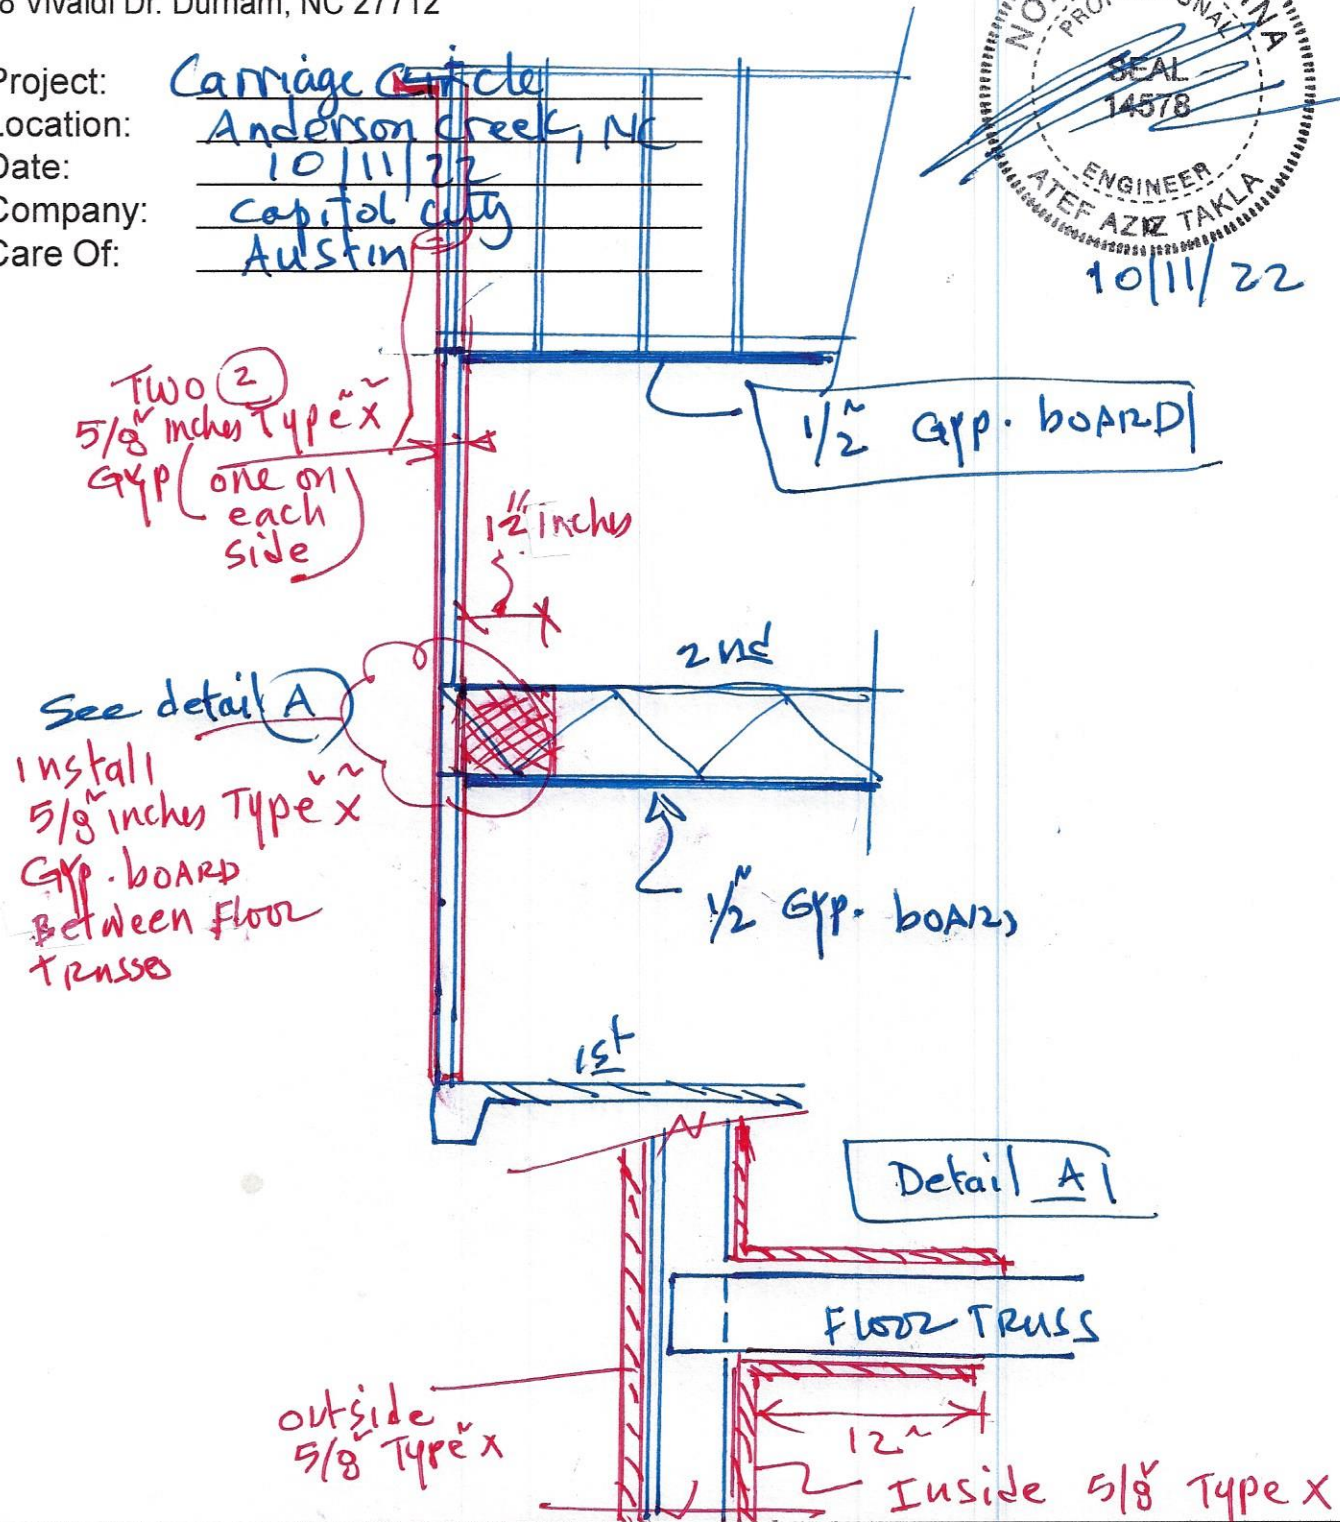 8 Vivaldi Dr. Durham, NC 27712
Project: Carriage Circle
Location: Anderson Creek, NC
Date: 10/11/22
Company: Capitol city
Care Of: Austin
PROFESSIONAL
SEAL
14578
ENGINEER
ATEF AZIZ TAKLA
10/11/22
TWO 2
5/8" inches Type "X"
GYP (one on
each
side)
1/2" GYP. BOARD
12" inches
2nd
See detail A
Install
5/8" inches Type "X"
GYP. BOARD
Between Floor
trusses
1/2" GYP. BOARD
1st
Detail A
FLOOR TRUSS
outside
5/8" Type X
12"
Inside 5/8" Type X